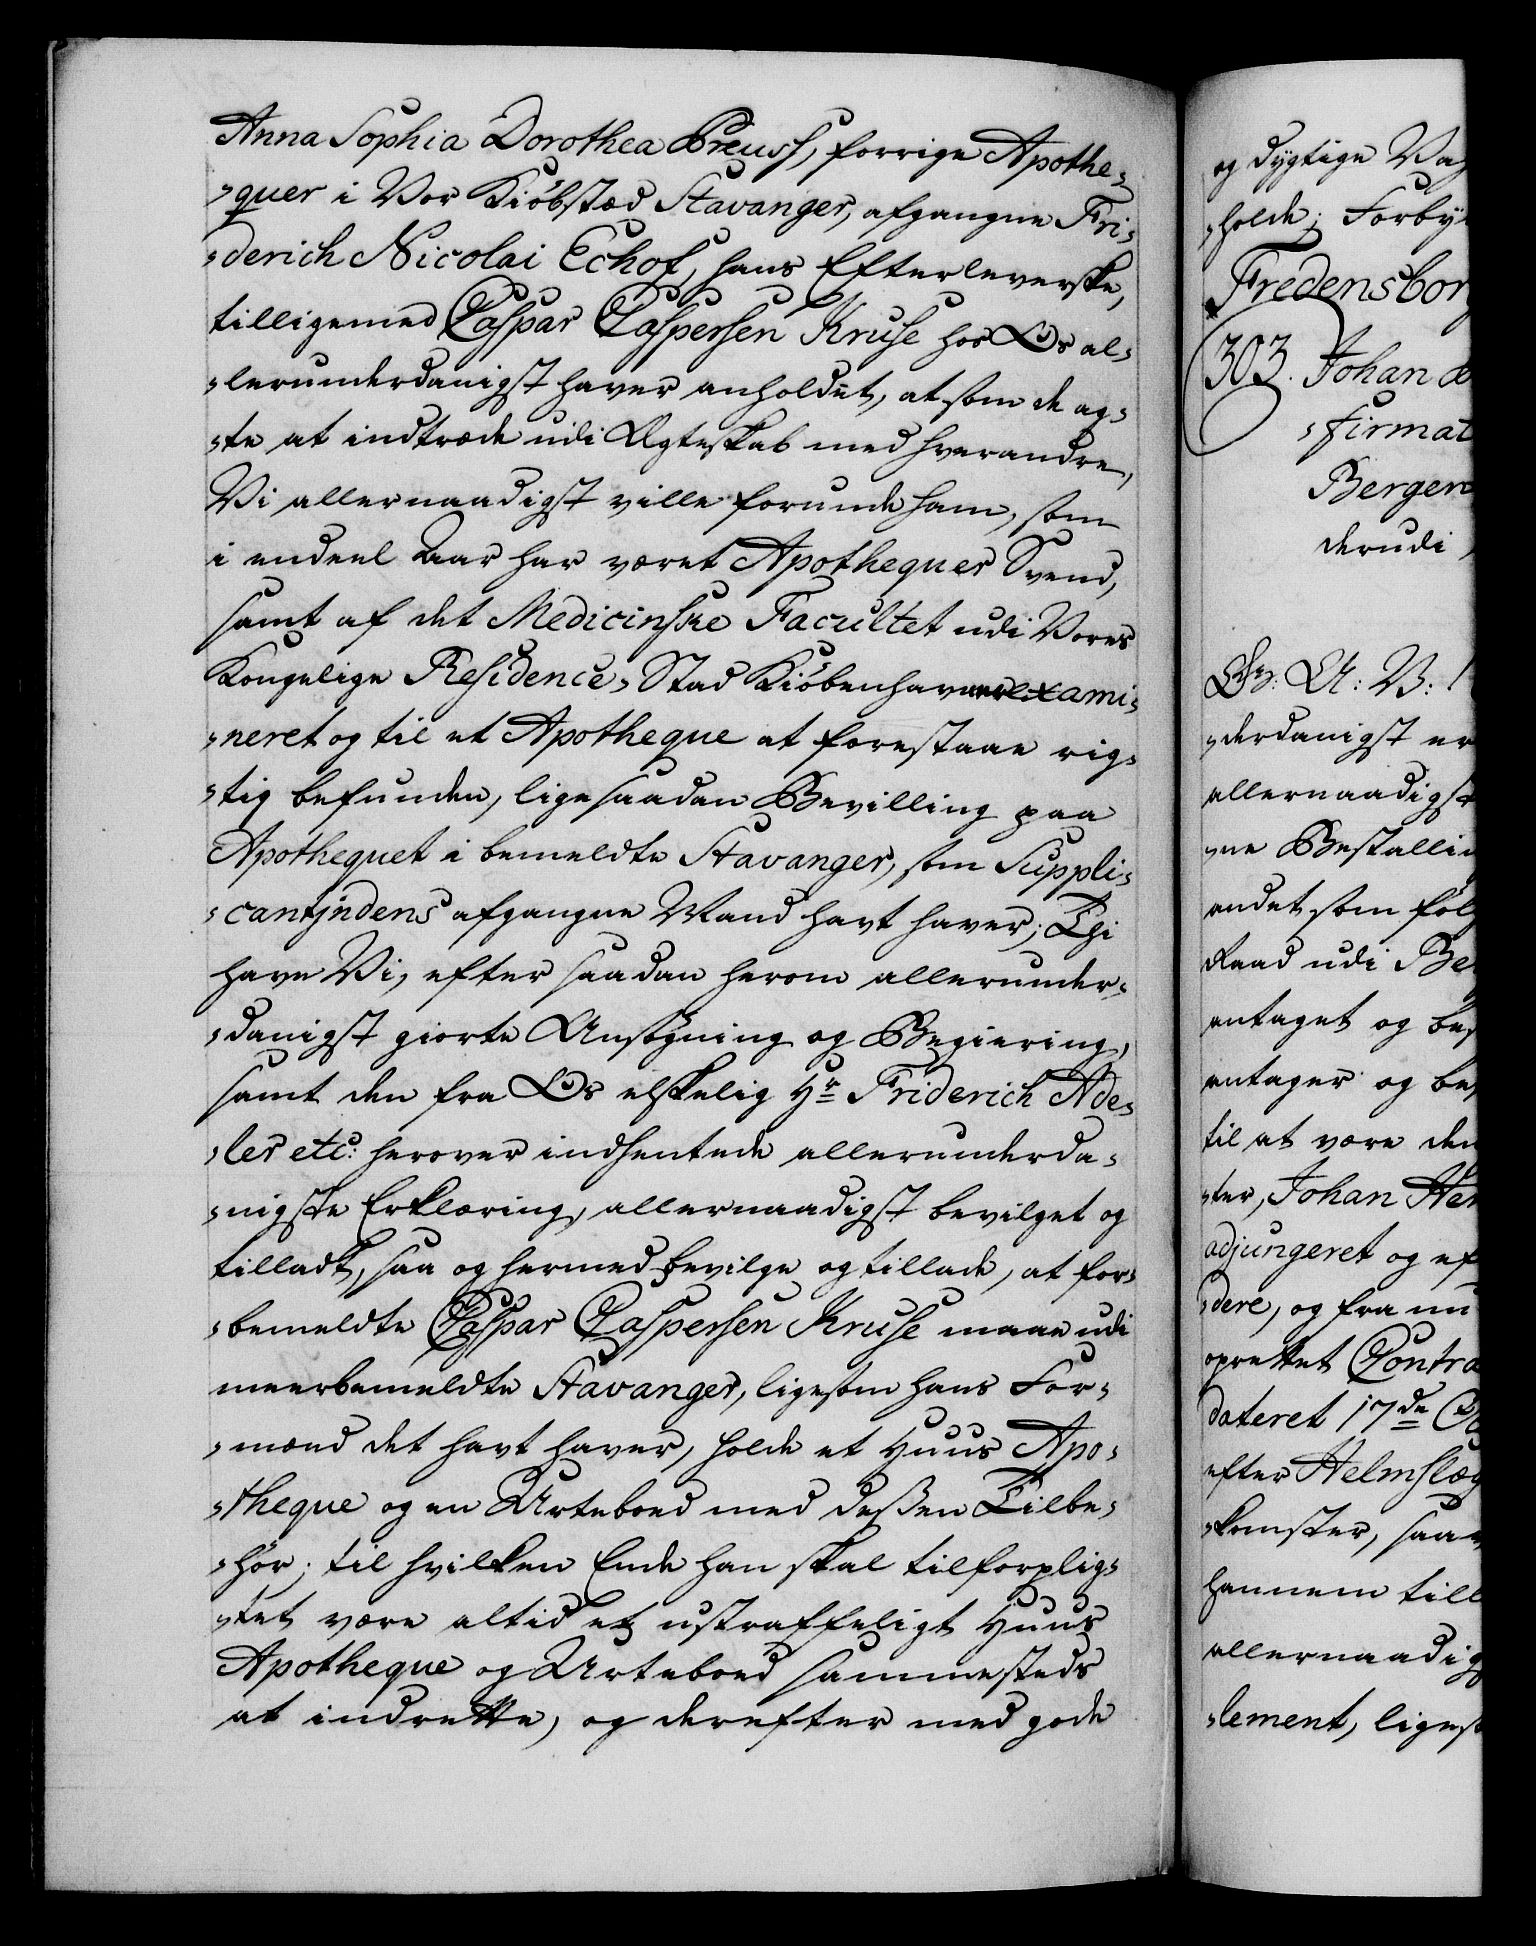 Anna Sophia Dorothea Preuss, forrige Apothe-
-quer i Vor Kiöbstæd Stavanger, afgangne Fri-
-derich Nicolai Echof, hans Efterleverske,
tilligemed Caspar Caspersen Kruse hos Os al-
-lerunderdanigst haver anholdet, at som de ag-
-te at indtræde udi Ægteskab med hverandre,
Vi allernaadigst ville forunde ham, som
i endeel Aar har været Apothequer Svend,
samt af det Medicinske Facultet udi Vores
Kongelige Residence-Stad Kiöbenhavn exami-
-neret og til et Apotheque at forestaae rig-
-tig befunden, ligesaadan Bevilling paa
Apothequet i bemeldte Stavanger, som Suppli-
-cantindens afgangne Mand havt haver; Thi
have Vi, efter saadan herom allerunder-
-danigst giorte Ansögning og Begiering,
samt den fra Os elskelig Hr Friderich Ade-
-ler etc: herover indhentede allerunderda-
-nigste Erklæring, allernaadigst bevilget og
tilladt, saa og hermed bevilge og tillade, at for-
-bemeldte Caspar Caspersen Kruse maae udi
meerbemeldte Stavanger, ligesom hans For-
-mænd det havt haver, holde et Huus Apo-
-theque og en Urteboed med dessen Tilbe-
-hör; til hvilken Ende han skal tilforplig-
-tet være altid et ustraffeligt Huus
Apotheque og Urteboed sammesteds
at indrette, og derefter med gode
og dygtige
-holde; Forby
Fredensborg
303. Johan
-firmat
Bergen
derudi
Gr: A: V:
-derdanigst er
allernaadigst
-ne Bestalli
andet som föl
Raad udi Be
antaget og bes
antager og be
til at være den
-ter, Johan Hen
adjungeret og ef
-dere, og fra nu
oprettet Contra
dateret 17de
efter Helmslæg
-komster, saa
hannem till
allernaadig
-lement, ligest